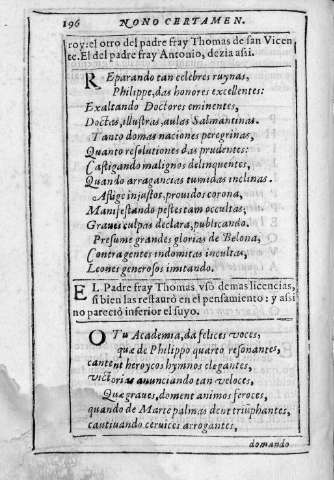 196 NONO CERTAMEN.
roy: el otro del padre fray Thomas de san Vicen
te. El del padre fray Antonio, dezia assi.
REparando tan celebres ruynas,
Philippe, das honores excellentes:
Exaltando Doctores eminentes,
Doctas, illustras, aulas Salmantinas.
Tanto domas naciones peregrinas,
Quanto resolutiones das prudentes:
Castigando malignos delinquentes,
Quando arragancias tumidas inclinas.
Aflige injustos, prouidos corona,
Manifestando pestes tam occultas,
Graues culpas declara, publicando.
Presume grandes glorias de Belona,
Contra gentes indomitas incultas,
Leones generosos imitando.
EL Padre fray Thomas vsò de mas licencias,
si bien las restaurò en el pensamiento: y assi
no pareciò inferior el suyo.
O Tu Academia, da felices voces,
que de Philippo quarto resonantes,
canten heroycos hymnos elegantes,
victorias anunciando tan veloces,
Que graues, doment animos feroces,
quando de Marte palmas dent triũphantes,
cautiuando ceruices arrogantes,
domando